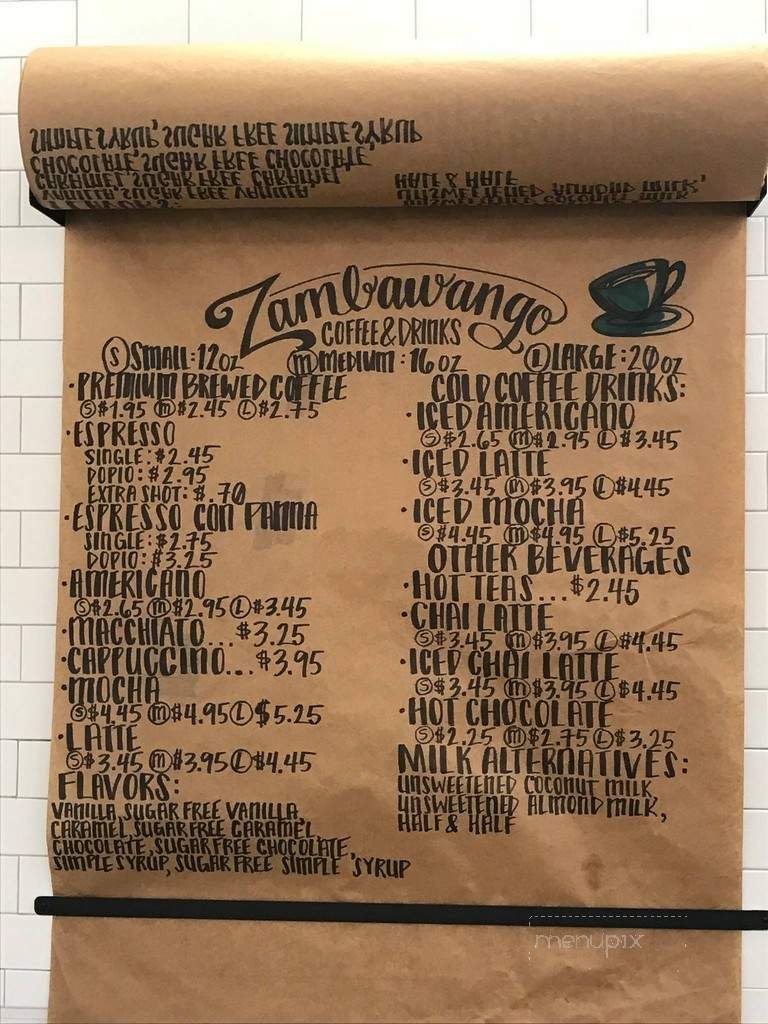 SIMPLE SYRUP, SUGAR FREE SIMPLE SYRUP
CHOCOLATE, SUGAR FREE CHOCOLATE
CARAMEL, SUGAR FREE CARAMEL
VANILLA, SUGAR FREE VANILLA,
HALF & HALF
UNSWEETENED ALMOND MILK,
UNSWEETENED COCONUT MILK
Zambawango
COFFEE & DRINKS
S SMALL: 12 OZ M MEDIUM: 16 OZ L LARGE: 20 OZ
• PREMIUM BREWED COFFEE
S $1.95 M $2.45 L $2.75
• ESPRESSO
SINGLE: $2.45
DOPIO: $2.95
EXTRA SHOT: $.70
• ESPRESSO CON PANNA
SINGLE: $2.75
DOPIO: $3.25
• AMERICANO
S $2.65 M $2.95 L $3.45
• MACCHIATO... $3.25
• CAPPUCCINO... $3.95
• MOCHA
S $4.45 M $4.95 L $5.25
• LATTE
S $3.45 M $3.95 L $4.45
FLAVORS:
VANILLA, SUGAR FREE VANILLA,
CARAMEL, SUGAR FREE CARAMEL,
CHOCOLATE, SUGAR FREE CHOCOLATE,
SIMPLE SYRUP, SUGAR FREE SIMPLE SYRUP
COLD COFFEE DRINKS:
• ICED AMERICANO
S $2.65 M $2.95 L $3.45
• ICED LATTE
S $3.45 M $3.95 L $4.45
• ICED MOCHA
S $4.45 M $4.95 L $5.25
OTHER BEVERAGES
• HOT TEAS... $2.45
• CHAI LATTE
S $3.45 M $3.95 L $4.45
• ICED CHAI LATTE
S $3.45 M $3.95 L $4.45
• HOT CHOCOLATE
S $2.25 M $2.75 L $3.25
MILK ALTERNATIVES:
UNSWEETENED COCONUT MILK,
UNSWEETENED ALMOND MILK,
HALF & HALF
menupix